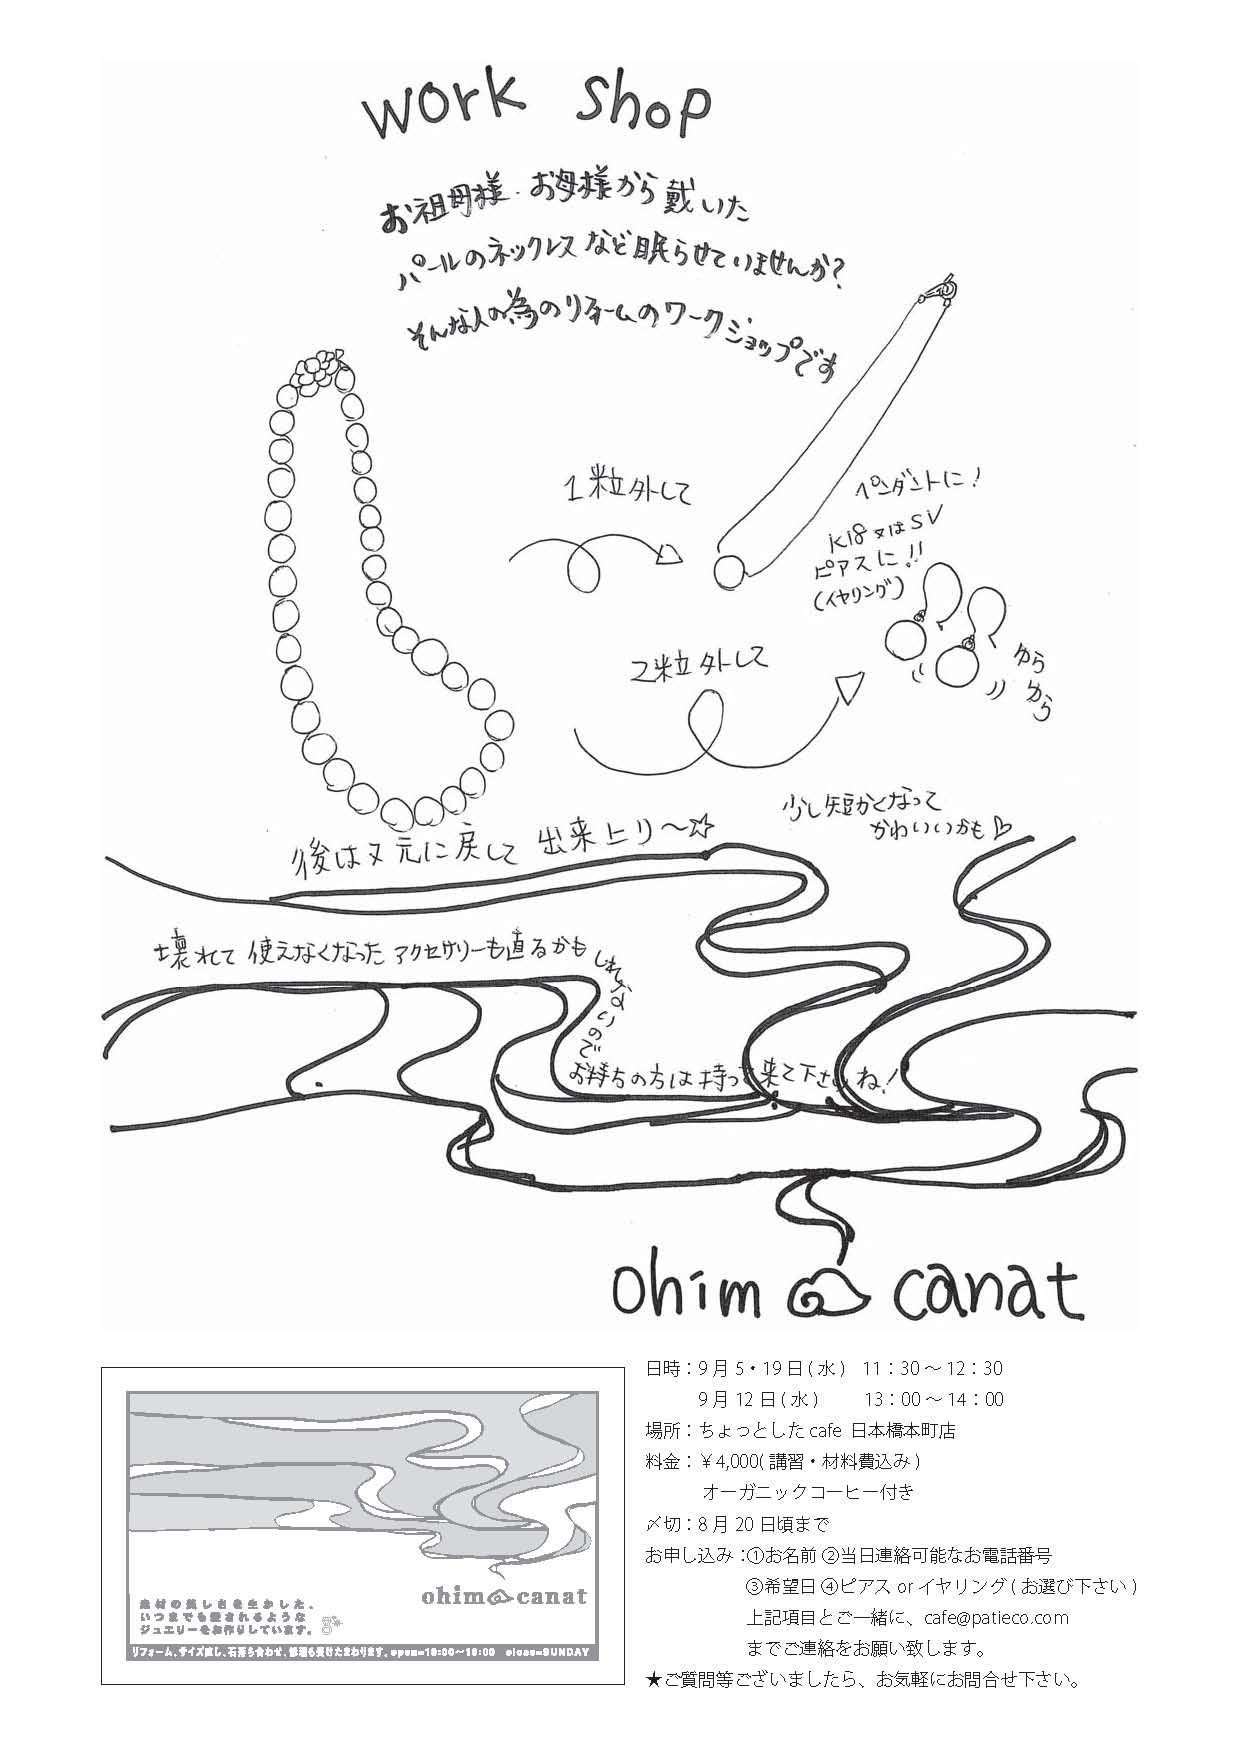 work shop
お祖母様.お母様から戴いた
パールのネックレスなど眠らせていませんか?
そんな人の為のリフォームのワークショップです
1粒外して
ペンダントに!
K18又はSV
ピアスに!!
(イヤリング)
2粒外して
ゆら
ゆら
少し短かくなって
かわいいかも♡
後は又元に戻して 出来上り〜☆
壊れて使えなくなったアクセサリーも直るかもしれないので
お持ちの方は持って来て下さいね!
ohim canat
日時：9月5・19日(水) 11：30～12：30
9月12日(水) 13：00～14：00
場所：ちょっとしたcafe 日本橋本町店
料金：￥4,000(講習・材料費込み)
オーガニックコーヒー付き
〆切：8月20日頃まで
お申し込み：①お名前 ②当日連絡可能なお電話番号
③希望日 ④ピアス or イヤリング(お選び下さい)
上記項目とご一緒に、cafe@patieco.com
までご連絡をお願い致します。
★ご質問等ございましたら、お気軽にお問合せ下さい。
ohim canat
素材の美しさを生かした、
いつまでも愛されるような
ジュエリーをお作りしています。
リフォーム、サイズ直し、石落ち合わせ、修理も受けたまわります。open=10:00〜18:00 close=SUNDAY